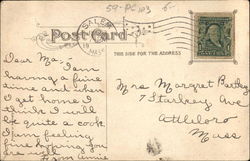 59-PC103
SALEM
Post Card
THIS SIDE FOR THE ADDRESS
Dear Ma:- I am
having a fine
time and when
I get home I
think I will
be quite a cook
I am feeling
fine hoping you
are well
From Annie
Mrs Margret Bartley
7 Sturkey Ave
Attleboro
Mass